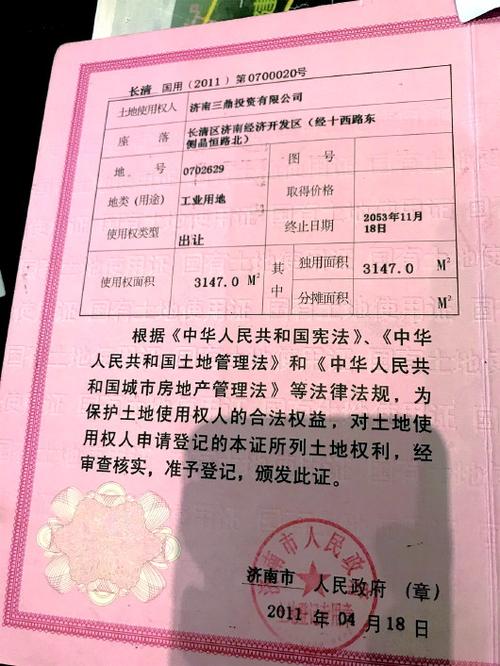 长清 国用（2011）第0700020号
土地使用权人 济南三鼎投资有限公司
座 落 长清区济南经济开发区（经十西路东
侧晶恒路北）
地 号 0702629 图 号
地类（用途） 工业用地 取得价格
使用权类型 出让 终止日期 2053年11月
18日
使用权面积 3147.0 M² 其中 独用面积 3147.0 M²
分摊面积 M²
根据《中华人民共和国宪法》、《中华
人民共和国土地管理法》和《中华人民共
和国城市房地产管理法》等法律法规，为
保护土地使用权人的合法权益，对土地使
用权人申请登记的本证所列土地权利，经
审查核实，准予登记，颁发此证。
济南市人民政
济南市 人民政府（章）
2011 年 04 月 18 日